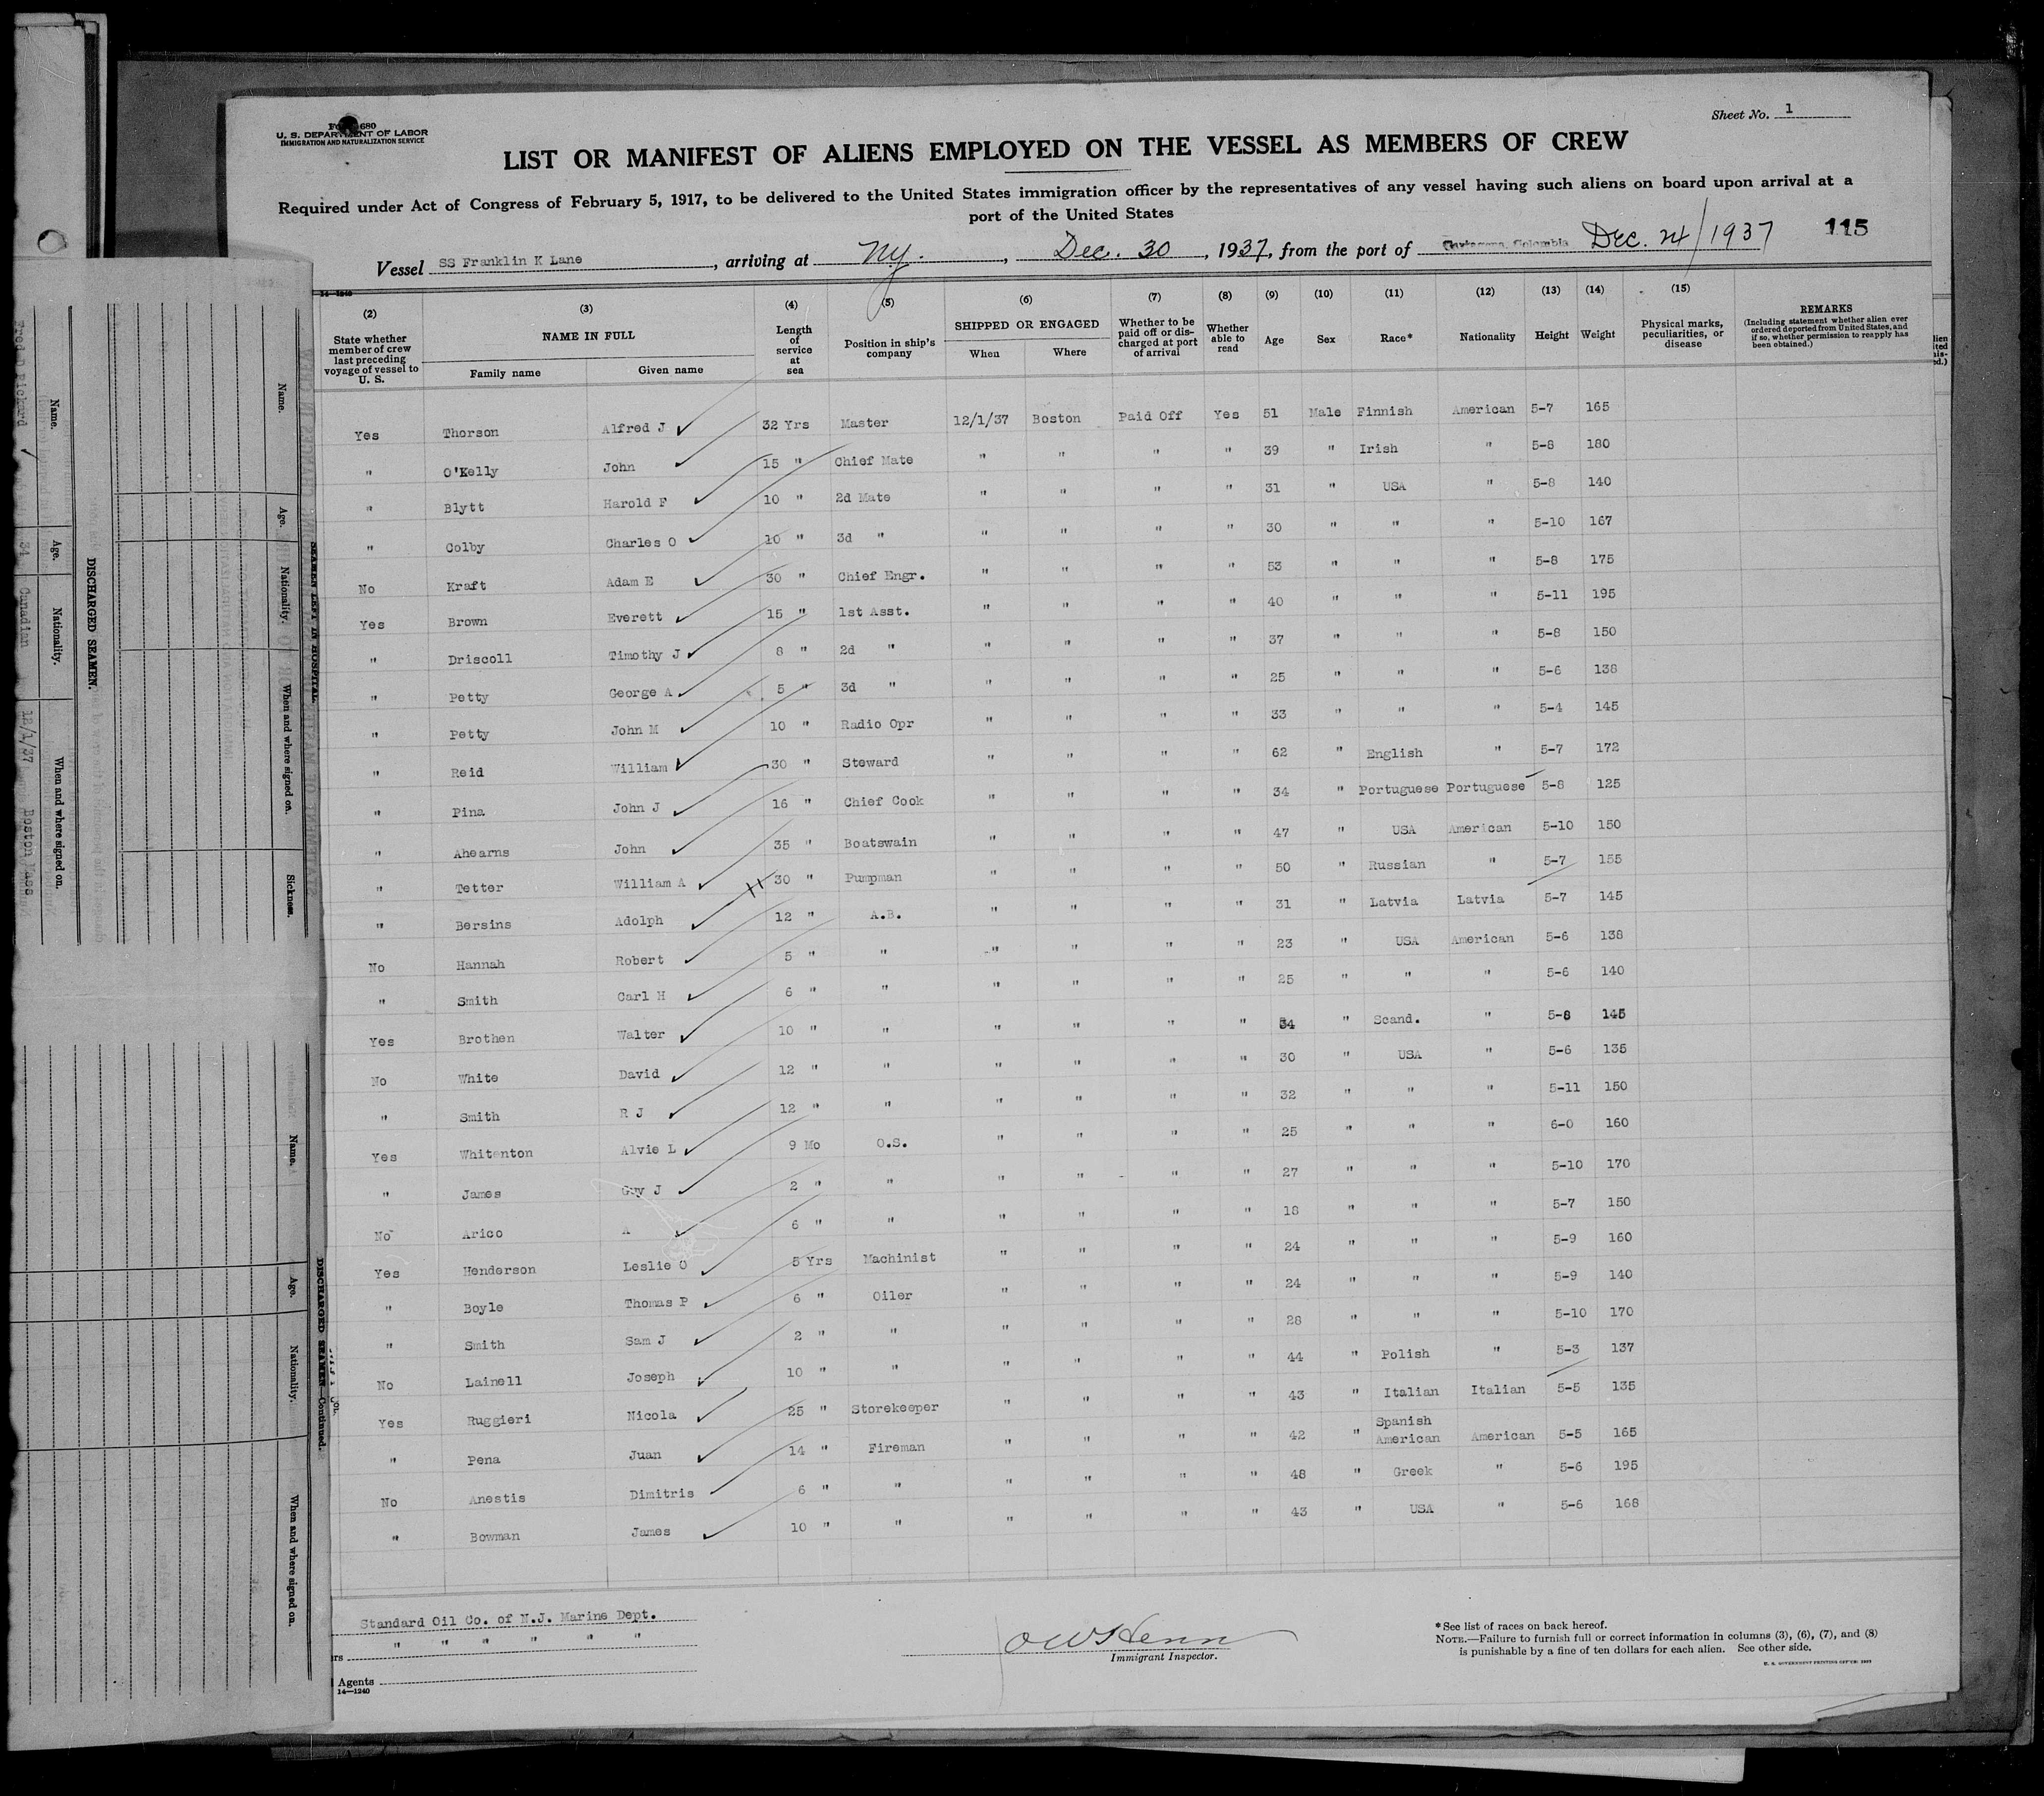 Sheet No. 1
680
U. S. DEPARTMENT OF LABOR
IMMIGRATION AND NATURALIZATION SERVICE
LIST OR MANIFEST OF ALIENS EMPLOYED ON THE VESSEL AS MEMBERS OF CREW
Required under Act of Congress of February 5, 1917, to be delivered to the United States immigration officer by the representatives of any vessel having such aliens on board upon arrival at a
port of the United States
115
Vessel SS Franklin K Lane, arriving at Ny., Dec. 30, 1937, from the port of Cartagena, Colombia Dec. 24/1937
14—1240
(2) (3) (4) (5) (6) (7) (8) (9) (10) (11) (12) (13) (14) (15)
State whether member of crew last preceding voyage of vessel to U. S. NAME IN FULL Family name Given name Length of service at sea Position in ship's company SHIPPED OR ENGAGED When Where Whether to be paid off or discharged at port of arrival Whether able to read Age Sex Race* Nationality Height Weight Physical marks, peculiarities, or disease REMARKS (Including statement whether alien ever ordered deported from United States, and if so, whether permission to reapply has been obtained.)
Yes Thorson Alfred J 32 Yrs Master 12/1/37 Boston Paid Off Yes 51 Male Finnish American 5-7 165
" O'Kelly John 15 " Chief Mate " " " " 39 " Irish " 5-8 180
" Blytt Harold F 10 " 2d Mate " " " " 31 " USA " 5-8 140
" Colby Charles O 10 " 3d " " " " " 30 " " " 5-10 167
No Kraft Adam E 30 " Chief Engr. " " " " 53 " " " 5-8 175
Yes Brown Everett 15 " 1st Asst. " " " " 40 " " " 5-11 195
" Driscoll Timothy J 8 " 2d " " " " " 37 " " " 5-8 150
" Petty George A 5 " 3d " " " " " 25 " " " 5-6 138
" Petty John M 10 " Radio Opr " " " " 33 " " " 5-4 145
" Reid William 30 " Steward " " " " 62 " English " 5-7 172
" Pina John J 16 " Chief Cook " " " " 34 " Portuguese Portuguese 5-8 125
" Ahearns John 35 " Boatswain " " " " 47 " USA American 5-10 150
" Tetter William A 30 " Pumpman " " " " 50 " Russian " 5-7 155
" Bersins Adolph 12 " A.B. " " " " 31 " Latvia Latvia 5-7 145
No Hannah Robert 5 " " " " " " 23 " USA American 5-6 138
" Smith Carl H 6 " " " " " " 25 " " " 5-6 140
Yes Brothen Walter 10 " " " " " " 34 " Scand. " 5-8 145
No White David 12 " " " " " " 30 " USA " 5-6 135
" Smith R J 12 " " " " " " 32 " " " 5-11 150
Yes Whitenton Alvie L 9 Mo O.S. " " " " 25 " " " 6-0 160
" James Guy J 2 " " " " " " 27 " " " 5-10 170
No Arico A 6 " " " " " " 18 " " " 5-7 150
Yes Henderson Leslie O 5 Yrs Machinist " " " " 24 " " " 5-9 160
" Boyle Thomas P 6 " Oiler " " " " 24 " " " 5-9 140
" Smith Sam J 2 " " " " " " 28 " " " 5-10 170
No Lainell Joseph 10 " " " " " " 44 " Polish " 5-3 137
Yes Ruggieri Nicola 25 " Storekeeper " " " " 43 " Italian Italian 5-5 135
" Pena Juan 14 " Fireman " " " " 42 " Spanish American American 5-5 165
No Anestis Dimitris 6 " " " " " " 48 " Greek " 5-6 195
" Bowman James 10 " " " " " " 43 " USA " 5-6 168
Standard Oil Co. of N.J. Marine Dept.
" " " " " "
rs
Agents
14—1240
O W Henn
Immigrant Inspector.
*See list of races on back hereof.
NOTE.—Failure to furnish full or correct information in columns (3), (6), (7), and (8)
is punishable by a fine of ten dollars for each alien. See other side.
U. S. GOVERNMENT PRINTING OFFICE
DISCHARGED SEAMEN.
Name. Age. Nationality. When and where signed on.
34 Canadian 12/1/37 Boston Mass
SEAMEN LEFT IN HOSPITAL
Name. Age. Nationality. When and where signed on. Sickness.
DISCHARGED SEAMEN—Continued.
Name. Age. Nationality. When and where signed on.